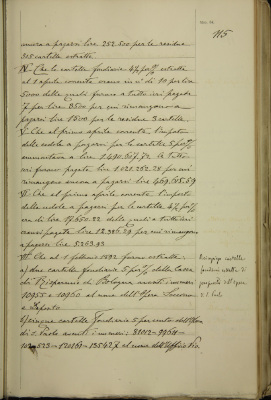 115
mora a pagarsi lire 252.500 per le residue
315 cartelle estratte.
IV. Che le cartelle fondiarie 4½ per % estratte
al 1 aprile corrente erano in n° di 10 per lire
5000 delle quali furono a tutt'ieri pagate
7 per lire 3500 per cui rimangono a
pagarsi lire 1500 per le residue 3 cartelle.
V. Che al primo aprile corrente l'importo
delle cedole a pagarsi per le cartelle 5 per %
ammontava a lire 1.490.667.72 le tutto
ieri furono pagate lire 1.021.252.28 per cui
rimangono ancora a pagarsi lire 469.
VI. Che al primo aprile corrente l'importo
delle cedole a pagarsi per le cartelle 4½ per %
era di lire 17.650.22 delle quali a tutt'ieri
eransi pagate lire 12.386.29 per cui rimangono
a pagarsi lire 5263.93
VII. Che al 1 febbraio 1892 furono estratte:
a) due cartelle fondiarie 5 per % della Cassa
di Risparmio di Bologna aventi i numeri
10955 e 10960 al nome dell'Opera Soccorso
e Deposito
b) cinque cartelle fondiarie 5 per cento dell'Opera
di S. Paolo aventi i numeri: 82012 -
al nome dell'Ufficio Pio.
Riimpiego cartelle
fondiarie estratte di
proprietà dell'Opera